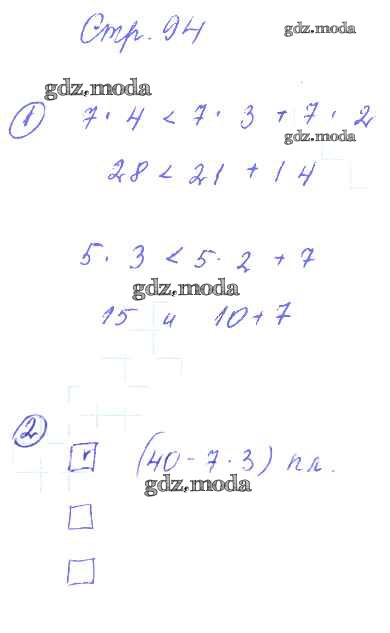 Стр. 94
gdz.moda
gdz.moda
1 7 · 4 < 7 · 3 + 7 · 2
gdz.moda
28 < 21 + 14
5 · 3 < 5 · 2 + 7
gdz.moda
15 и 10 + 7
2
(40 - 7 · 3) пл.
gdz.moda